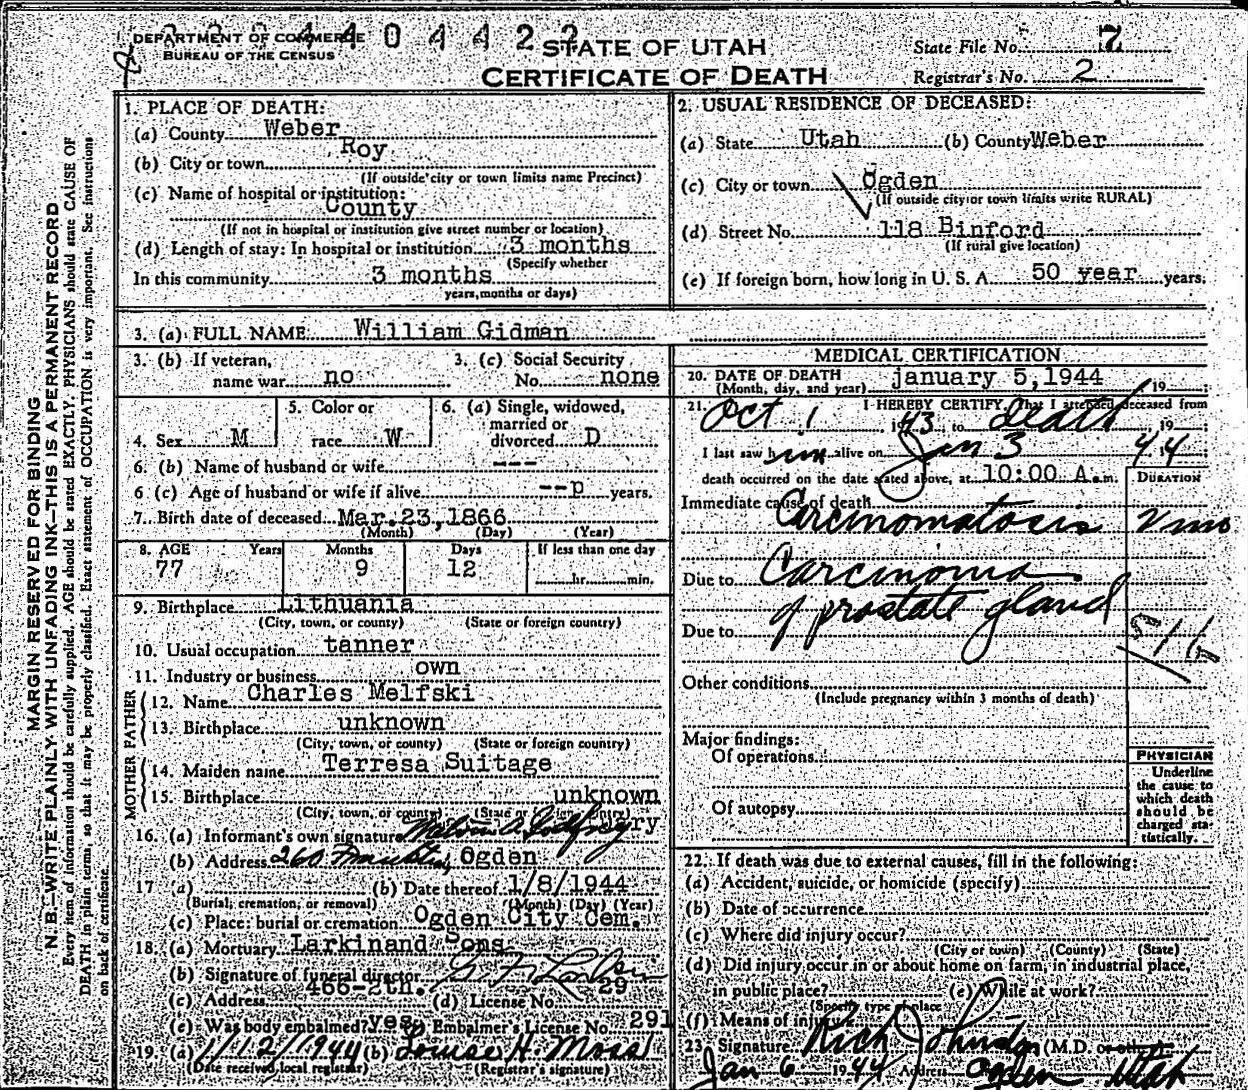 DEPARTMENT OF COMMERCE
BUREAU OF THE CENSUS
4 4 0 4 4 2
STATE OF UTAH
CERTIFICATE OF DEATH
State File No. 7
Registrar's No. 2
MARGIN RESERVED FOR BINDING
N. B.—WRITE PLAINLY WITH UNFADING INK—THIS IS A PERMANENT RECORD
Every item of information should be carefully supplied. AGE should be stated EXACTLY. PHYSICIANS should state CAUSE OF
DEATH in plain terms, so that it may be properly classified. Exact statement of OCCUPATION is very important. See instructions
on back of certificate.
1. PLACE OF DEATH:
(a) County Weber
(b) City or town Roy
(If outside city or town limits name Precinct)
(c) Name of hospital or institution:
County
(If not in hospital or institution give street number or location)
(d) Length of stay: In hospital or institution 3 months
(Specify whether
In this community 3 months
years, months or days)
2. USUAL RESIDENCE OF DECEASED:
(a) State Utah (b) County Weber
(c) City or town Ogden
(If outside city or town limits write RURAL)
(d) Street No. 118 Binford
(If rural give location)
(e) If foreign born, how long in U. S. A. 50 year years.
3. (a) FULL NAME William Gidman
3. (b) If veteran,
name war no
3. (c) Social Security
No. none
4. Sex M
5. Color or
race W
6. (a) Single, widowed,
married or
divorced D
6. (b) Name of husband or wife ---
6 (c) Age of husband or wife if alive --p years.
7. Birth date of deceased Mar.23,1866
(Month) (Day) (Year)
8. AGE Years Months Days If less than one day
77 9 12 hr. min.
9. Birthplace Lithuania
(City, town, or county) (State or foreign country)
10. Usual occupation tanner
11. Industry or business own
FATHER
12. Name Charles Melfski
13. Birthplace unknown
(City, town, or county) (State or foreign country)
MOTHER
14. Maiden name Terresa Suitage
15. Birthplace unknown
(City, town, or county) (State or foreign country)
16. (a) Informant's own signature Melvin Godfrey
(b) Address 260 Ogden
17 (a) (b) Date thereof 1/8/1944
(Burial, cremation, or removal) (Month) (Day) (Year)
(c) Place: burial or cremation Ogden City Cem.
18. (a) Mortuary Larkinand Sons
(b) Signature of funeral director
(c) Address (d) License No. 29
(e) Was body embalmed? yes (f) Embalmer's License No. 291
19. (a) 1/12/1944 (b) Louise H. Moss
(Date received local registrar) (Registrar's signature)
MEDICAL CERTIFICATION
20. DATE OF DEATH
(Month, day, and year) january 5,1944 19
21. I HEREBY CERTIFY, That I attended deceased from
Oct 1 1943, to death, 19
I last saw him alive on Jan 3 1944
death occurred on the date stated above, at 10:00 A.m.
DURATION
Immediate cause of death
Carcinomatosis
Due to Carcinoma
of prostate gland
Due to
Other conditions
(Include pregnancy within 3 months of death)
Major findings:
Of operations
Of autopsy
PHYSICIAN
Underline
the cause to
which death
should be
charged sta-
tistically.
22. If death was due to external causes, fill in the following:
(a) Accident, suicide, or homicide (specify)
(b) Date of occurrence
(c) Where did injury occur?
(City or town) (County) (State)
(d) Did injury occur in or about home on farm, in industrial place,
in public place? (e) While at work?
(Specify type of place
(f) Means of injury
23. Signature Rich Johnston (M.D. or
Jan 6 1944 Address Ogden Utah